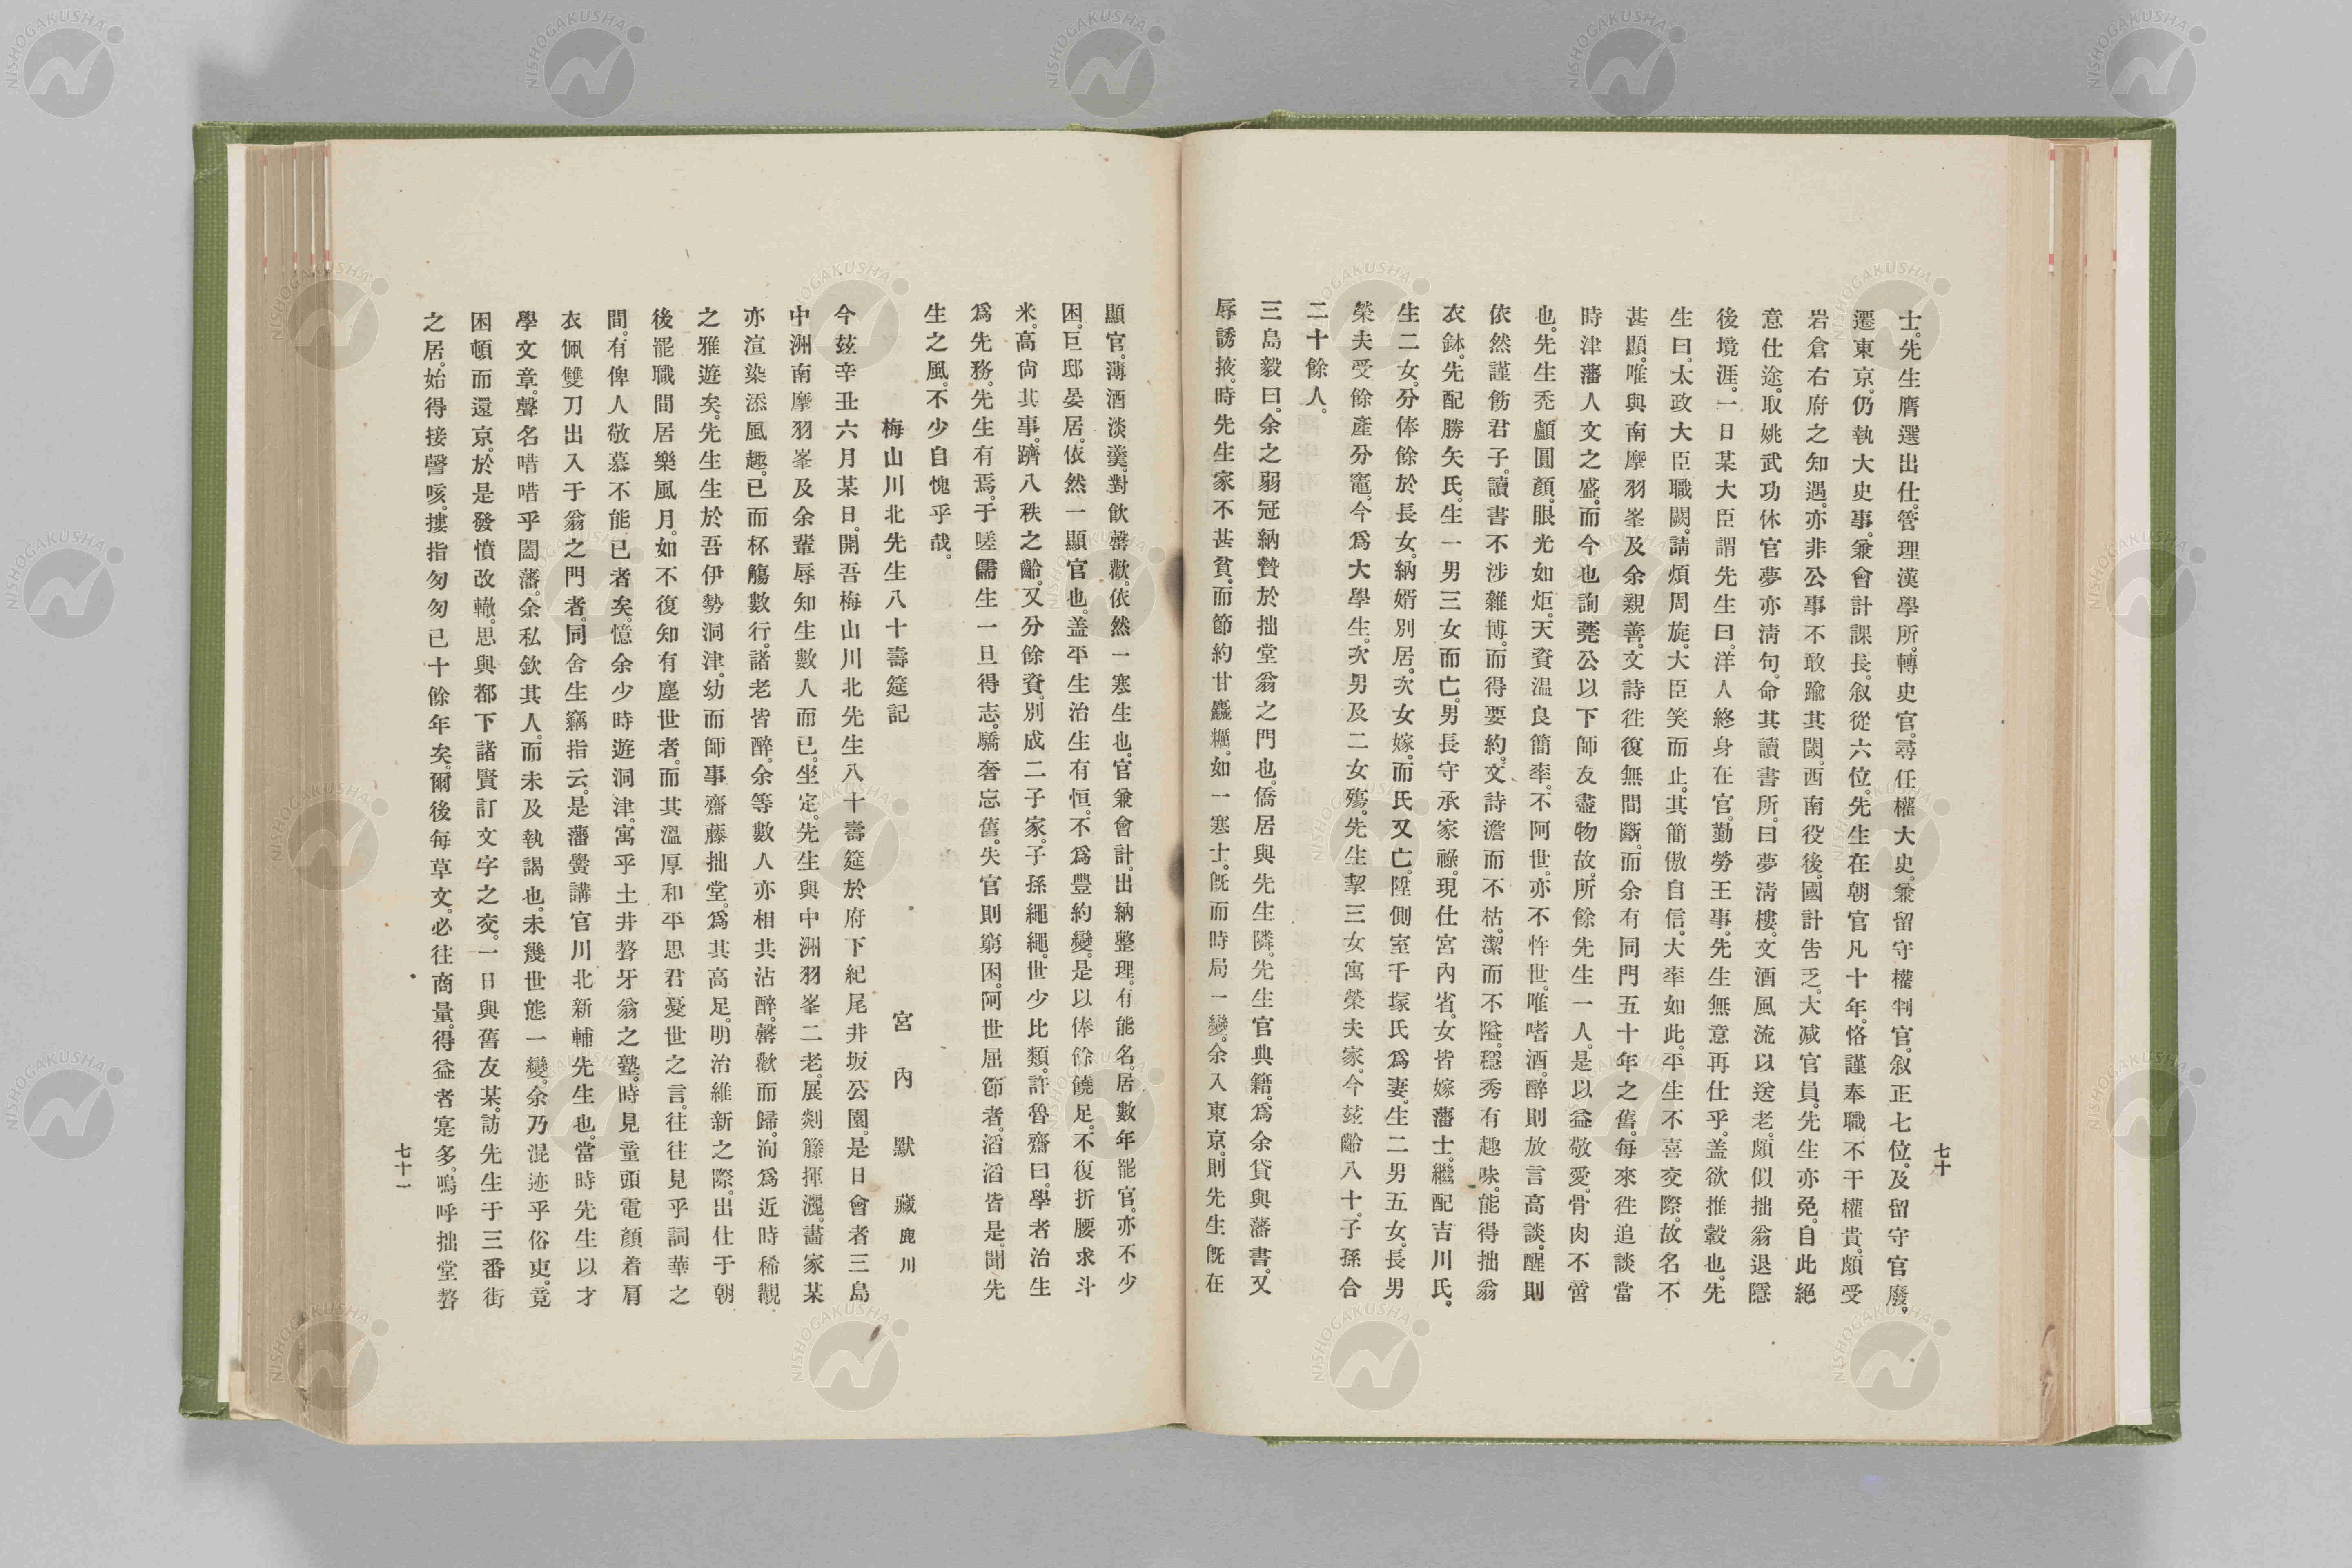 士。先生膺選出仕。管理漢學所。轉史官。尋任權大史。兼留守權判官。叙正七位。及留守官廢。
遷東京。仍執大史事。兼會計課長。叙從六位。先生在朝官凡十年。恪謹奉職。不干權貴。頗受
岩倉右府之知遇。亦非公事不敢踰其閾。西南役後。國計告乏。大減官員。先生亦免。自此絕
意仕途。取姚武功休官夢亦淸句。命其讀書所。曰夢淸樓。文酒風流以送老。頗似拙翁退隱
後境涯。一日某大臣謂先生曰。洋人終身在官。勤勞王事。先生無意再仕乎。盖欲推轂也。先
生曰。太政大臣職闕。請煩周旋。大臣笑而止。其簡傲自信。大率如此。平生不喜交際。故名不
甚顯。唯與南摩羽峯及余親善。文詩徃復無間斷。而余有同門五十年之舊。每來徃追談當
時津藩人文之盛。而今也詢蕘公以下師友盡物故。所餘先生一人。是以益敬愛。骨肉不啻
也。先生禿顱圓顏。眼光如炬。天資温良簡率。不阿世。亦不忤世。唯嗜酒。醉則放言高談。醒則
依然謹飭君子。讀書不涉雜博。而得要約。文詩澹而不枯。潔而不隘。穩秀有趣味。能得拙翁
衣鉢。先配勝矢氏。生一男三女而亡。男長守承家祿。現仕宮內省。女皆嫁藩士。繼配吉川氏。
生二女。分俸餘於長女。納婿別居。次女嫁。而氏又亡。陞側室千塚氏爲妻。生二男五女。長男
榮夫受餘產分竈。今爲大學生。次男及二女殤。先生挈三女寓榮夫家。今玆齡八十。子孫合
二十餘人。
三島毅曰。余之弱冠納贄於拙堂翁之門也。僑居與先生隣。先生官典籍。爲余貸與藩書。又
辱誘掖。時先生家不甚貧。而節約甘麤糲。如一寒士。旣而時局一變。余入東京。則先生旣在
七十
顯官。薄酒淡羹。對飮罄歡。依然一寒生也。官兼會計。出納整理。有能名。居數年罷官。亦不少
困。巨邸晏居。依然一顯官也。盖平生治生有恒。不爲豐約變。是以俸餘饒足。不復折腰求斗
米。高尙其事。躋八秩之齡。又分餘資。別成二子家。子孫繩繩。世少比類。許魯齋曰。學者治生
爲先務。先生有焉。于嗟儒生一旦得志。驕奢忘舊。失官則窮困。阿世屈節者。滔滔皆是。聞先
生之風。不少自愧乎哉。
梅山川北先生八十壽筵記
宮內默藏鹿川
今玆辛丑六月某日。開吾梅山川北先生八十壽筵於府下紀尾井坂公園。是日會者三島
中洲南摩羽峯及余輩辱知生數人而已。坐定。先生與中洲羽峯二老。展剡籐揮灑。畵家某
亦渲染添風趣。已而杯觴數行。諸老皆醉。余等數人亦相共沾醉。罄歡而歸。洵爲近時稀觀
之雅遊矣。先生生於吾伊勢洞津。幼而師事齋藤拙堂。爲其高足。明治維新之際。出仕于朝
後罷職間居樂風月。如不復知有塵世者。而其溫厚和平思君憂世之言。往往見乎詞華之
間。有俾人敬慕不能已者矣。憶余少時遊洞津。寓乎土井聱牙翁之塾。時見童頭電顏着肩
衣佩雙刀出入于翁之門者。同舍生竊指云。是藩黌講官川北新輔先生也。當時先生以才
學文章。聲名唶唶乎闔藩。余私欽其人。而未及執謁也。未幾世態一變。余乃混迹乎俗吏。竟
困頓而還京。於是發憤改轍。思與都下諸賢訂文字之交。一日與舊友某。訪先生于三番街
之居。始得接謦咳。摟指匆匆已十餘年矣。爾後每草文。必往商量。得益者寔多。嗚呼拙堂聱
七十一